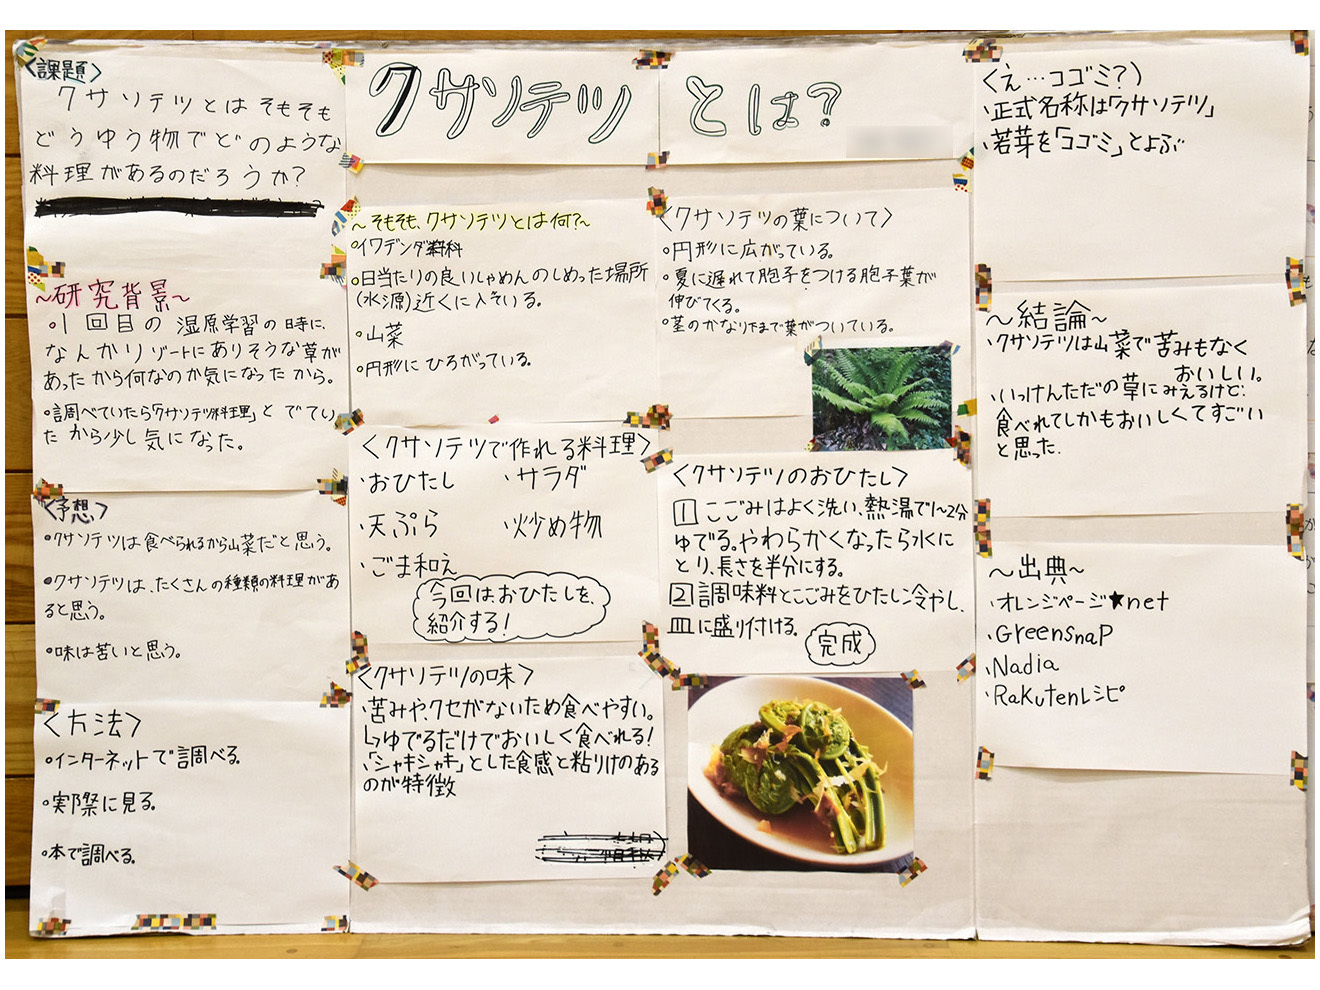 クサソテツとは?
<課題>
クサソテツとはそもそも
どうゆう物でどのような
料理があるのだろうか?
~研究背景~
・1回目の湿原学習の時に、
なんかリゾートにありそうな草が
あったから何なのか気になったから。
・調べていたら「クサソテツ料理」とでてい
たから少し気になった。
<予想>
・クサソテツは食べられるから山菜だと思う。
・クサソテツは、たくさんの種類の料理があ
ると思う。
・味は苦いと思う。
<方法>
・インターネットで調べる。
・実際に見る。
・本で調べる。
~そもそも、クサソテツとは何?~
・イワデンダ科
・日当たりの良いしゃめんのしめった場所
(水源)近くに入そいる。
・山菜
・円形にひろがっている。
<クサソテツで作れる料理>
・おひたし ・サラダ
・天ぷら ・炒め物
・ごま和え
今回はおひたしを、
紹介する!
<クサソテツの味>
・苦みや、クセがないため食べやすい。
↳ゆでるだけでおいしく食べれる!
・「シャキシャキ」とした食感と粘りけのある
のが特徴
<クサソテツの葉について>
・円形に広がっている。
・夏に遅れて胞子をつける胞子葉が
伸びてくる。
・茎のかなり下まで葉がついている。
<クサソテツのおひたし>
1 こごみはよく洗い、熱湯で1~2分
ゆでる。やわらかくなったら水に
とり、長さを半分にする。
2 調味料とこごみをひたし冷やし、
皿に盛り付ける。
完成
<え…コゴミ?)
・正式名称は「クサソテツ」
・若芽を「コゴミ」とよぶ
~結論~
・クサソテツは山菜で苦みもなく
おいしい。
・いっけんただの草にみえるけど、
食べれてしかもおいしくてすごい
と思った.
~出典~
・オレンジページ★net
・GreensnaP
・Nadia
・Rakutenレシピ